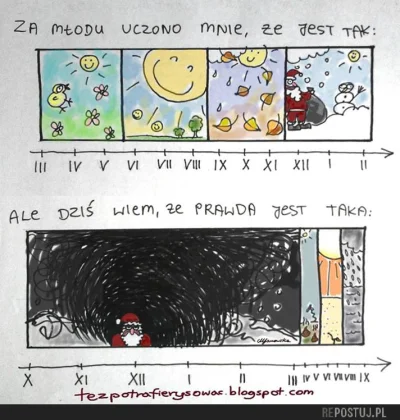 ZA MŁODU UCZONO MNIE, ŻE JEST TAK:
III IV V VI VII VIII IX X XI XII I II
ALE DZIŚ WIEM, ŻE PRAWDA JEST TAKA:
X XI XII I II III IV V VI VII VIII IX
tezpotrafierysowac.blogspot.com
REPOSTUJ.PL